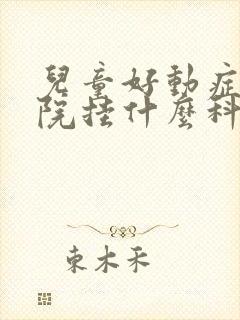 兒童好動症
院挂什麼科
東木禾